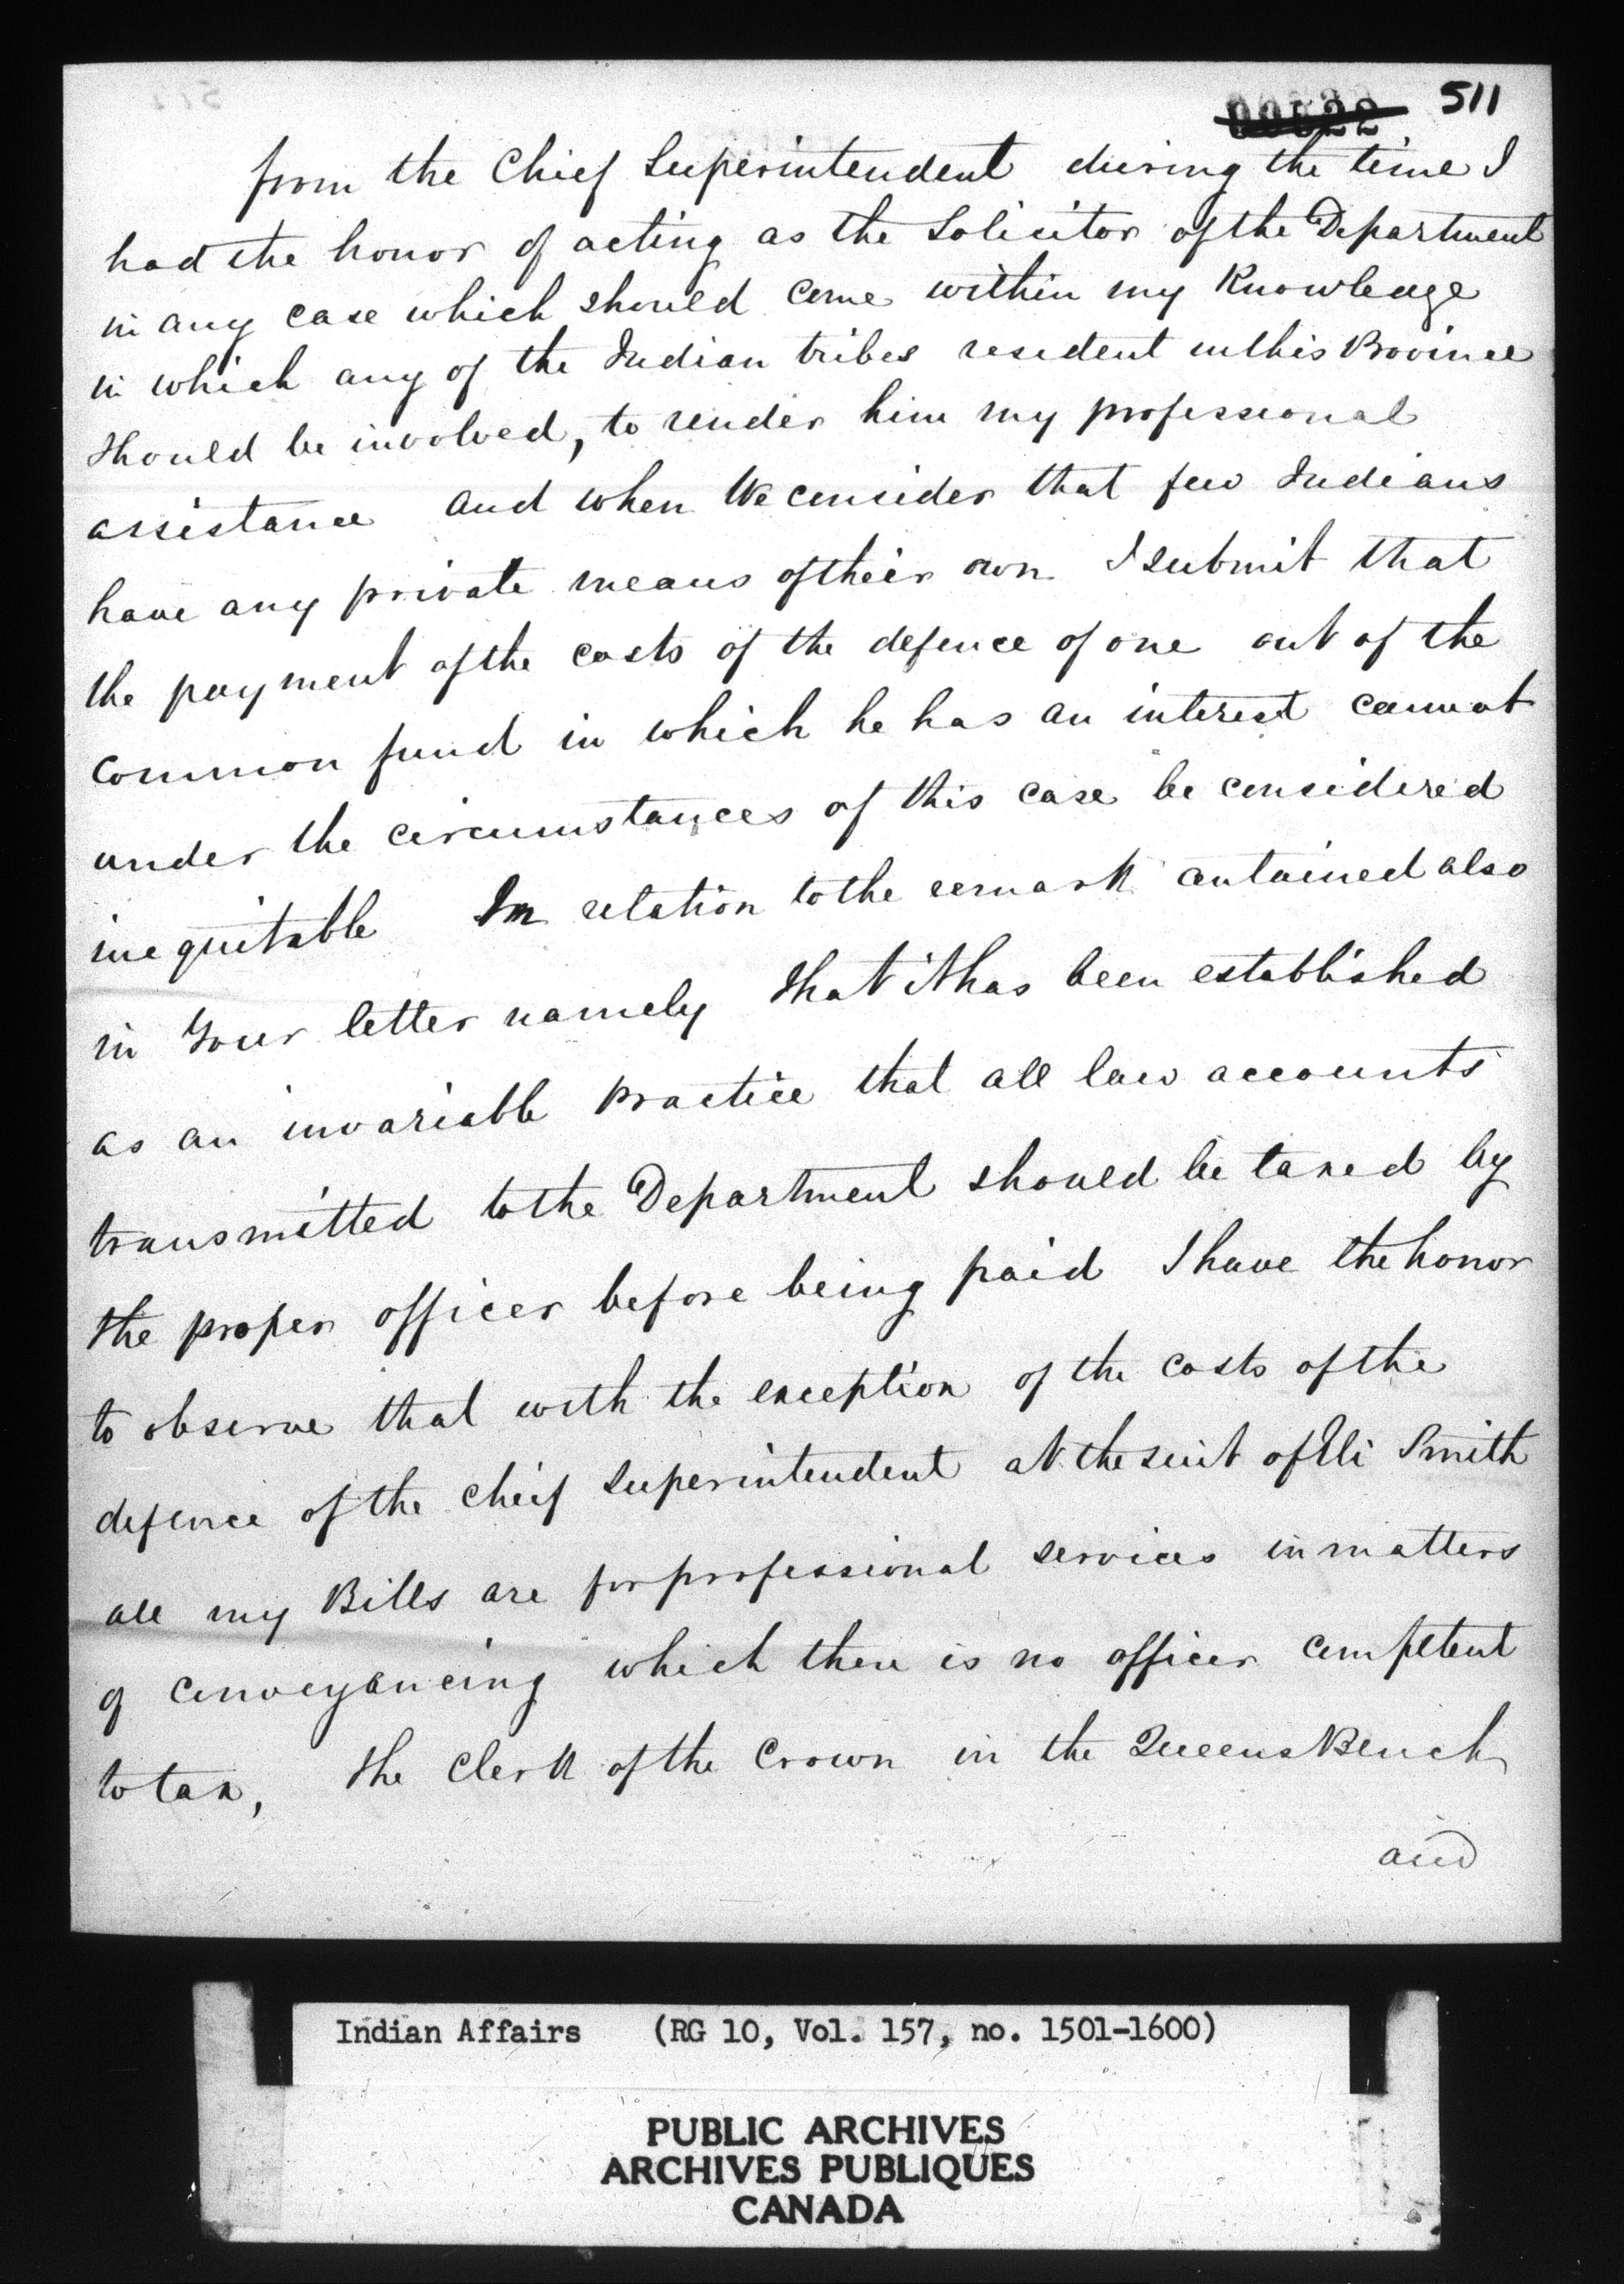 00522 511
from the Chief Superintendent during the time I
had the honor of acting as the Solicitor of the Department
in any case which should come within my Knowledge
in which any of the Indian tribes resident in this Province
should be involved, to render him my professional
assistance and when We consider that few Indians
have any private means of their own I submit that
the payment of the costs of the defence of one out of the
common fund in which he has an interest cannot
under the circumstances of this case be considered
inequitable In relation to the remark contained also
in Your letter namely that it has been established
as an invariable practice that all law accounts
transmitted to the Department should be taxed by
the proper officer before being paid I have the honor
to observe that with the exception of the costs of the
defence of the Cheif Superintendent at the suit of Eli Smith
all my Bills are for professional services in matters
of Conveyancing which there is no officer competent
to tax, the Clerk of the Crown in the Queens Bench
and
Indian Affairs (RG 10, Vol. 157, no. 1501-1600)
PUBLIC ARCHIVES
ARCHIVES PUBLIQUES
CANADA